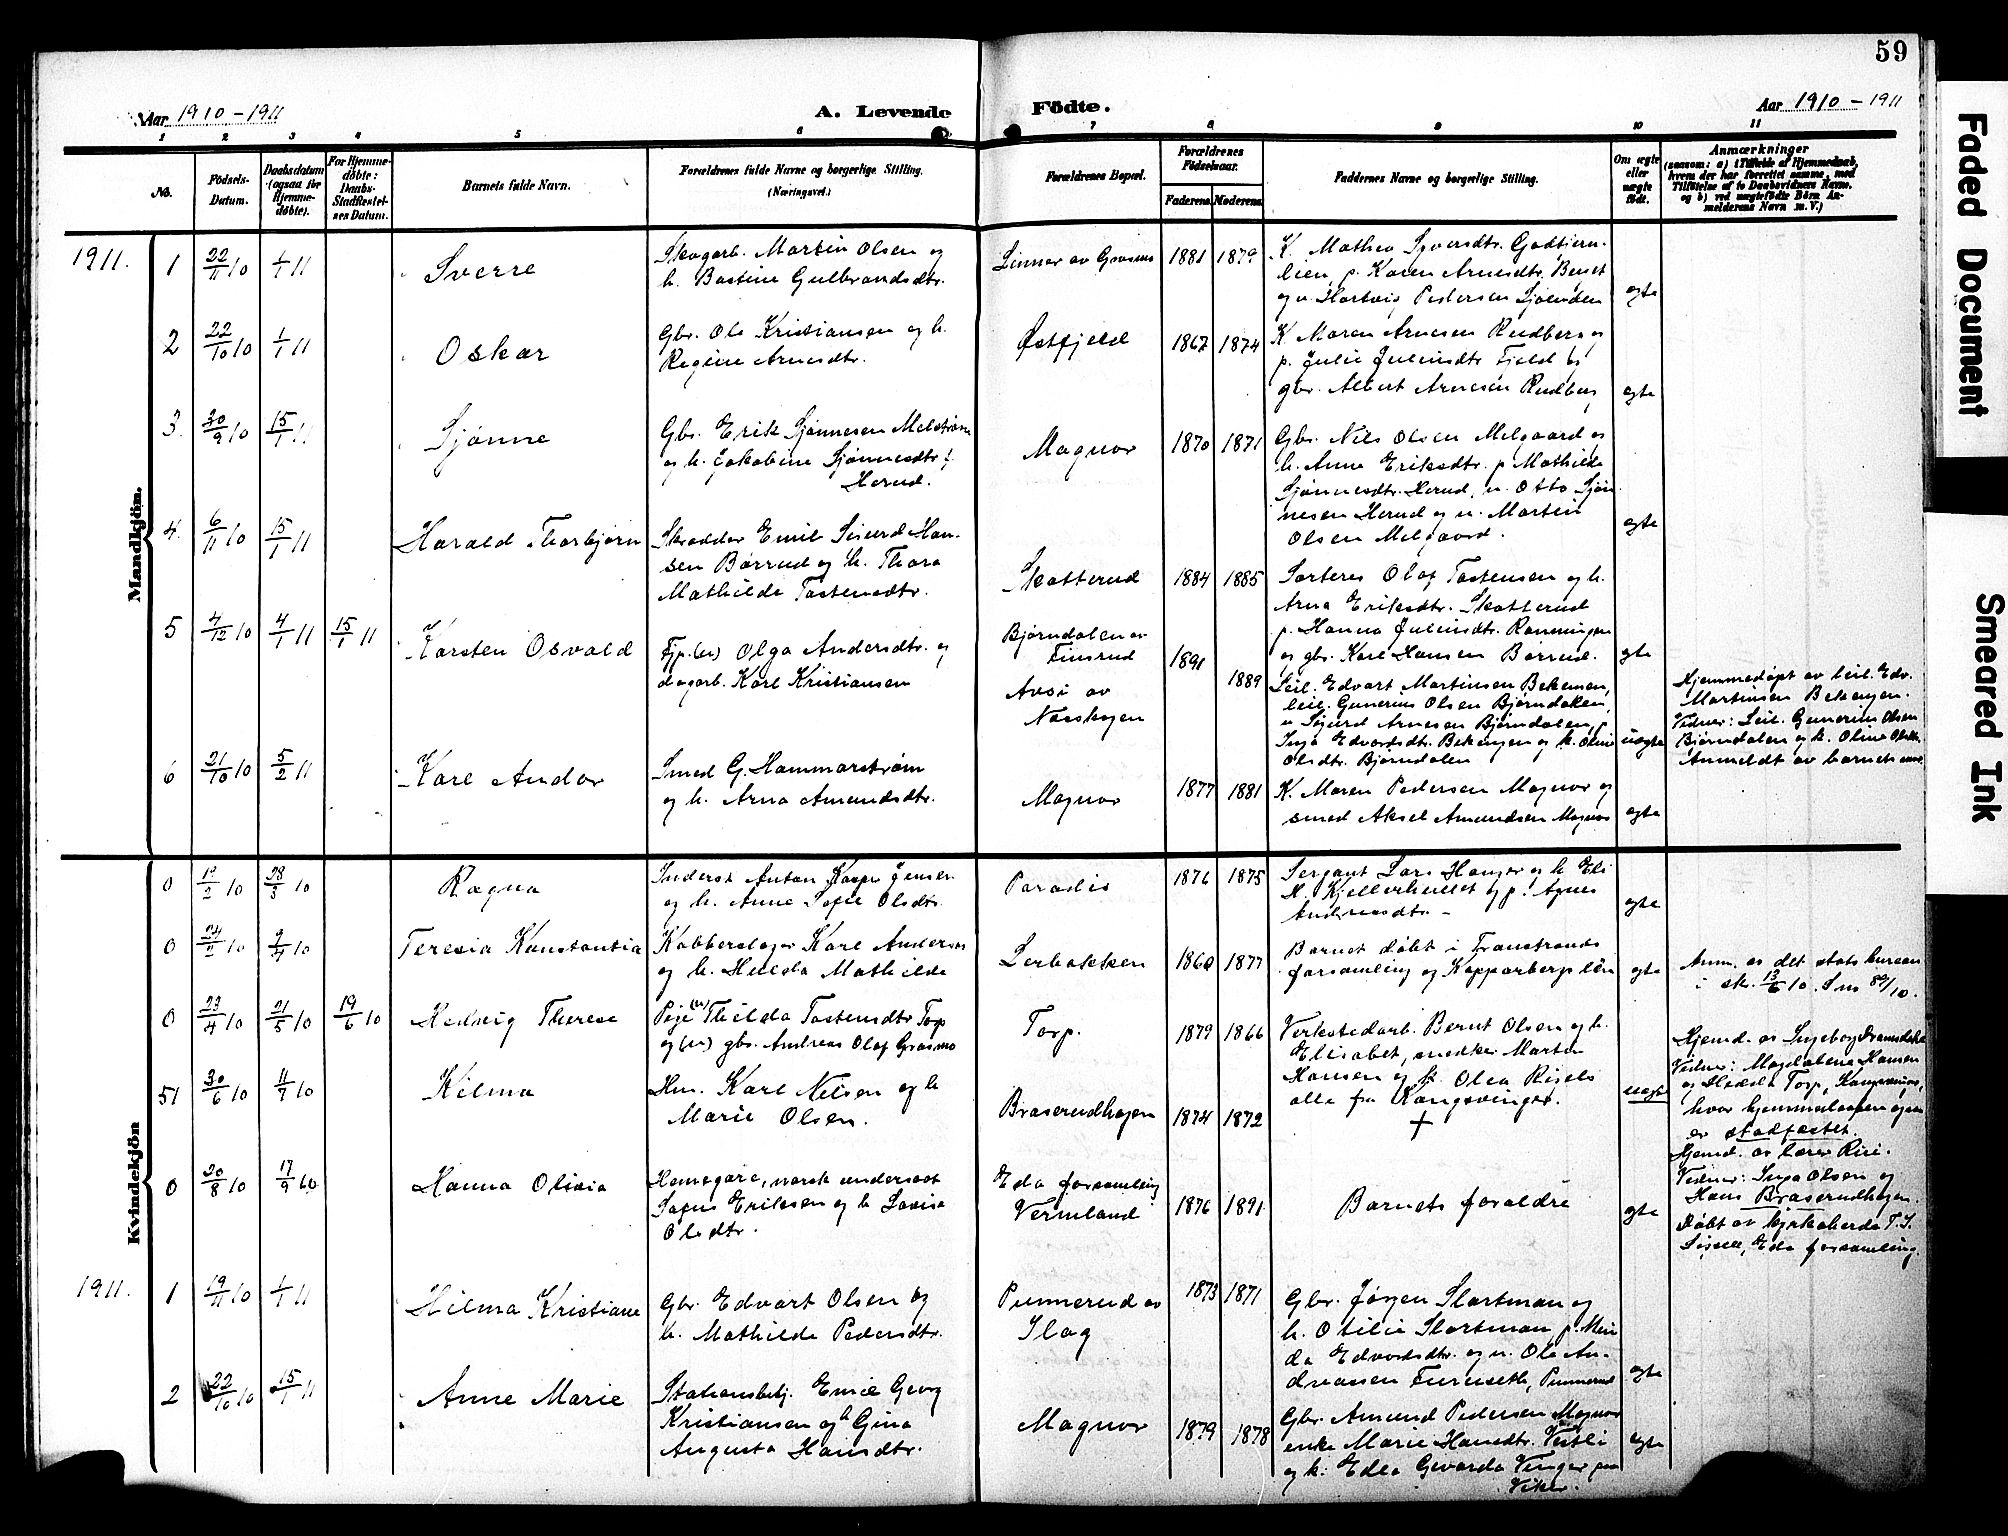 59
Aar 1910 - 1911
A. Levende
Födte.
Aar 1910 - 1911
1 2 3 4 5 6 7 8 9 10 11
No.
Födsels-
Datum.
Daabsdatum
(ogsaa för
Hjemme-
döbte).
For Hjemme-
döbte:
Daabs-
Stadfæstel-
ses Datum.
Barnets fulde Navn.
Forældrenes fulde Navne og borgerlige Stilling.
(Næringsvei.)
Forældrenes Bopæl.
Forældrenes
Födselsaar.
Faderens. Moderens.
Faddernes Navne og borgerlige Stilling.
Om ægte
eller
uægte
födt.
Anmærkninger
(saasom: a) i Tilfælde af Hjemmedaab,
hvem der har forrettet samme, med
Tilföielse af to Daabsvidners Navne,
og b) ved uægtefödte Börn An-
melderens Navn m. V.)
Mandkjön.
1911.
1 22/11 10 1/1 11 Sverre
Skogarb. Martin Olsen og
h. Bastine Gulbrandsdtr.
Linner av Grasmo 1881 1879
K. Mathea Syversdtr. Godtjern-
lien, p. Karen Arnesdtr. Benet
og u. Hartvig Pedersen Sjøenden
egte
2 22/10 10 1/1 11 Oskar
Gbr. Ole Kristiansen og h.
Regine Arnesdtr.
Østfjeld 1867 1874
K Maren Arnesen Rudberg og
p. Julie Juliusdtr. Fjeld og
gbr. Albert Arnesen Rudberg
egte
3. 30/9 10 15/1 11 Sjønne
Gbr. Erik Sjønnesen Melstrøm
og h. Jakobine Sjønnesdtr. f.
Herud.
Magnor 1870 1871
Gbr. Nils Olsen Melgaard og
h. Anne Eriksdtr. p. Mathilde
Sjønnesdtr. Herud, u. Otto Sjøn-
nesen Herud og u. Martin
Olsen Melgaard.
egte
4. 6/11 10 15/1 11 Harald Thorbjørn
Skrædder Emil Sigurd Han-
sen Børrud og h. Thora
Mathilde Tostensdtr.
Skotterud 1884 1885
Sorterer Olaf Tostensen og h.
Arna Eriksdtr. Skotterud
p. Hanna Juliusdtr. Rønningen
og gbr. Karl Hansen Børrud.
egte
5 4/12 10 4/1 11 15/1 11 Karsten Osvald
Tjp. (u) Olga Andersdtr. og
dagarb. Karl Kristiansen
Bjørndalen av
Finsrud
Avsi av
Norskogen
1891
1889
Leil. Edvart Martinsen Bekengen,
leil. Gunerius Olsen Bjørndalen,
u. Sigurd Arnesen Bjørndalen, p.
Inga Edvartsdtr. Bekengen og k. Oline
Olsdtr. Bjørndalen
uegte
Hjemmedøpt av leil. Edv.
Martinsen Bekengen.
Vidner: Leil. Gunerius Olsen
Bjørndalen og k. Oline Olsdtr.
Anmeldt av barnets mor.
6 21/10 10 5/2 11 Karl Andor
Smed G. Hammarstrøm
og h. Arna Amundsdtr.
Magnor 1877 1881
K. Maren Pedersen Magnor og
smed Aksel Amundsen Magnor
egte
Kvindekjön
0 19/2 10 28/3 10 Ragna
Inderst Anton Kasper Jensen
og h. Anne Sofie Olsdtr.
Paradis 1876 1875
Sergant Lars Hanger og h. Eli
K. Kjellerhullet og p. Agnes
Andreasdtr. -
egte
0 24/2 10 2/4 10 Teresia Konstantia
Kobberslager Karl Anderson
og h. Hulda Mathilde
Lerbakken 1860 1877
Barnet døbt i Transtrands
forsamling og Kopparbergs län
egte
Anm. av det stat. bureau
i sk. 13/6 10. Jnr 89/10.
0 23/4 10 21/5 10 19/6 10 Hedvig Therese
Pige (u) Thilda Tostensdtr. Torp
og (u) gbs. Andreas Olaf Grasmo
Torp. 1879 1866
Verkstedarb. Bernt Olsen og h.
Elisabet, snedker Martin
Hansen og k. Olea Riseli
alle fra Kongsvinger.
uegte
Hjemd. av Ingeborg Tramdshe
Vidner: Magdalena Hansen
og Hedda Torp, Kongsvinger,
hvor hjemmedaapen ogsaa
er stadfæstet.
51 30/6 10 11/7 10 Hilma
Hm. Karl Nilsen og h
Marie Olsen.
Braserudhagen 1874 1872
+
Hjemd. av lærer Riri.
Vidner: Inga Olsen og
Hans Braserudhagen.
0 20/8 10 17/9 10 Hanna Olivia
Hemagare, norsk undersaat
Sofus Eriksen og h Lovisa
Olsdtr.
Eda forsamling
Vermland 1876 1891
Barnets foraldre
egte
Døbt av kyrkoherde T. J.
Sisell, Eda forsamling.
1911.
1 19/11 10 1/1 11 Hilma Kristiane
Gbr. Edvart Olsen og
h. Mathilde Pedersdtr.
Punnerud av
Slag
1873 1871
Gbr. Jørgen Slortman og
h. Otilie Slortman, p. Min
da Edvardsdtr. og u. Ole An-
dreassen Furuseth, Punnerud
egte
2 22/10 10 15/1 11 Anne Marie
Stationsbetj. Emil Georg
Kristiansen og h Gina
Augusta Hansdtr.
Magnor 1879 1878
Gbr. Amund Pedersen Magnor
enke Marie Hansdtr. Vestli
og k. Edla Gevarda Vinger paa
Viker.
egte
Faded Document
Smeared Ink